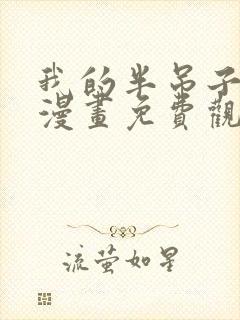 我的半吊子
漫畫免費觀
流萤如星